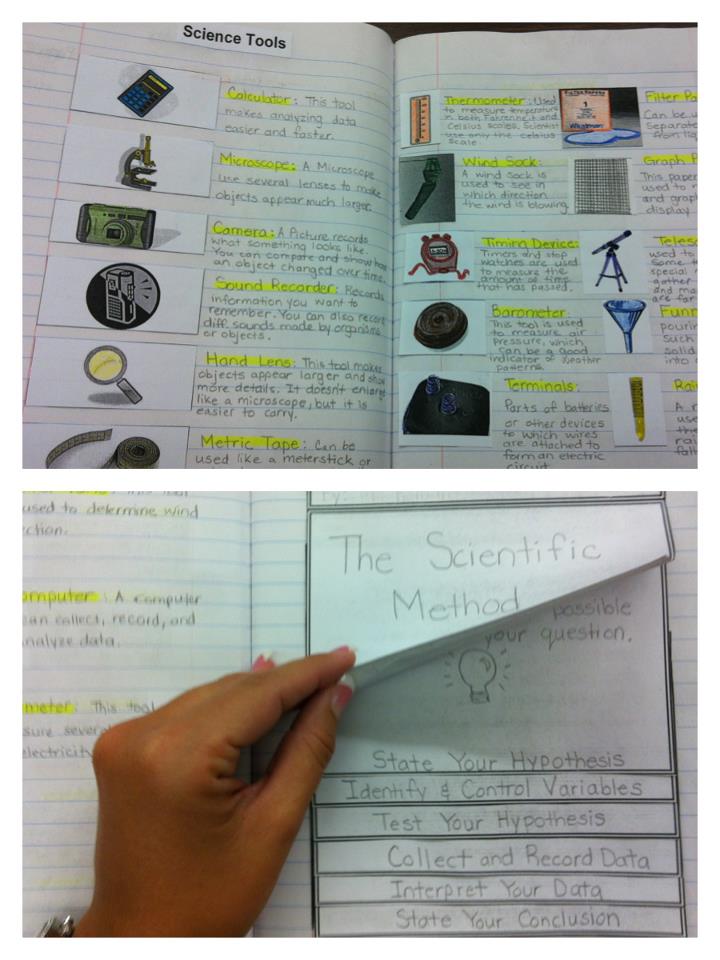 Science Tools
Calculator: This tool
makes analyzing data
easier and faster.
Microscope: A Microscope
use several lenses to make
objects appear much larger.
Camera: A Picture records
what something looks like.
You can compare and show how
an object changed over time.
Sound Recorder: Records
information you want to
remember. You can also record
diff. sounds made by organisms
or objects.
Hand Lens: This tool makes
objects appear larger and show
more details. It doesn't enlarge
like a microscope, but it is
easier to carry.
Metric Tape: Can be
used like a meterstick or
Thermometer: Used
to measure temperature
in both Fahrenheit and
Celsius scales. Scientist
use only the celsius
scale.
Wind Sock:
A wind sock is
used to see in
which direction
the wind is blowing.
Timing Device:
Timers and stop
watches are used
to measure the
amount of time
that has passed.
Barometer:
This tool is used
to measure air
pressure, which
can be a good
indicator of weather
patterns.
Terminals:
Parts of batteries
or other devices
to which wires
are attached to
form an electric
circuit.
1
Whatman
Filter Pa
Can be u
separate
from liq
Graph P
This paper
used to r
and graph
display
Teles
used to
Some t
special
gather
and ma
are far
Funn
pourin
such
solid
into
Rai
A r
use
the
rai
fall
used to determine wind
ction.
omputer: A computer
an collect, record, and
nalyze data.
meter: This tool
sure several
electricity
By:
The Scientific
Method
possible
your question.
State Your Hypothesis
Identify & Control Variables
Test Your Hypothesis
Collect and Record Data
Interpret Your Data
State Your Conclusion